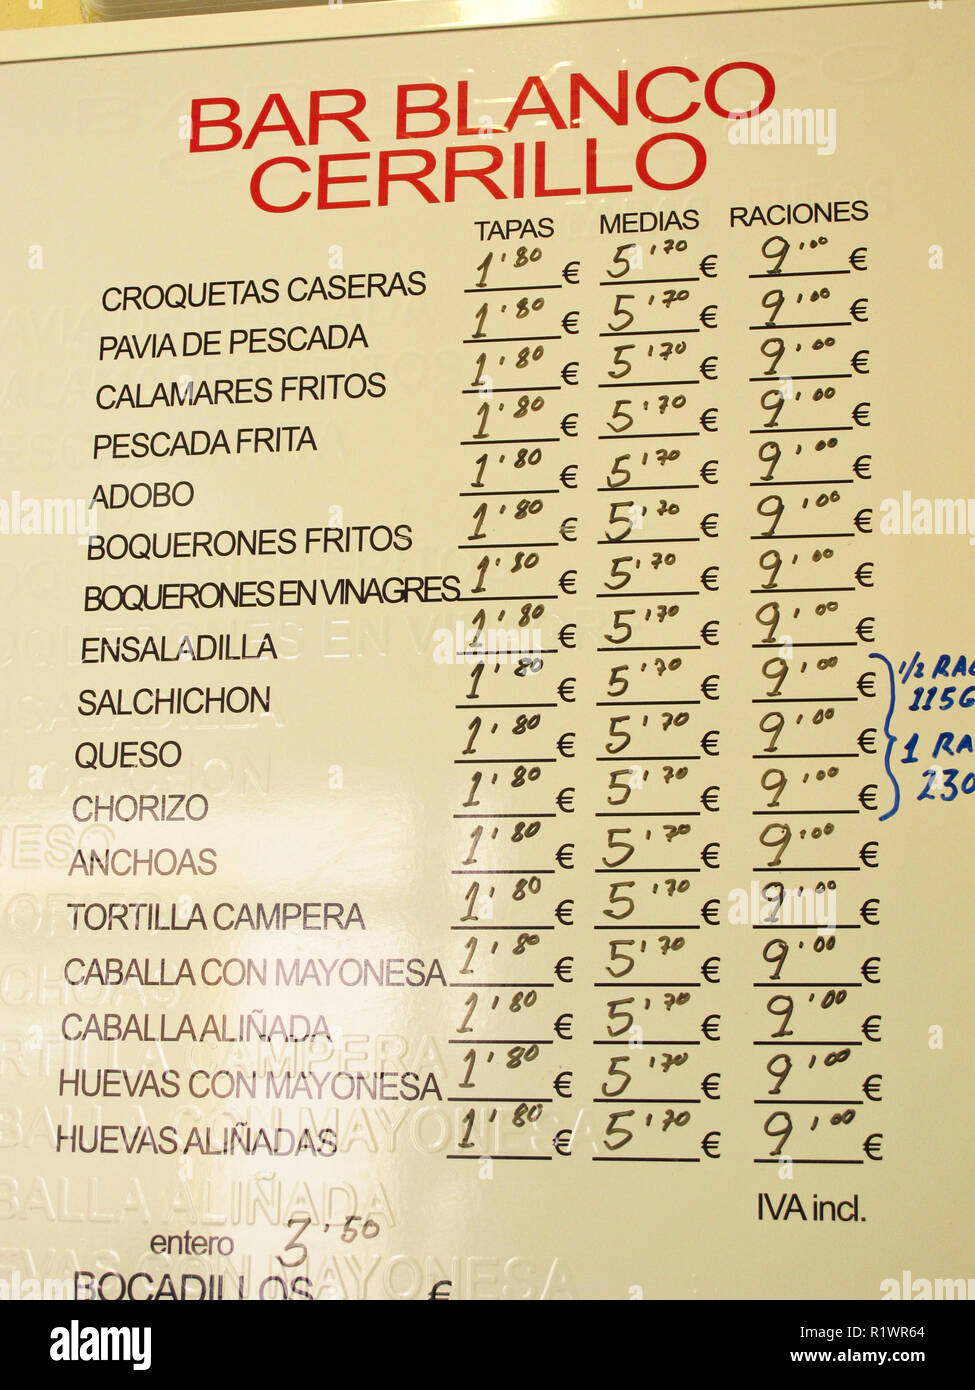 BAR BLANCO
CERRILLO
TAPAS MEDIAS RACIONES
CROQUETAS CASERAS 1'80 € 5'70 € 9'00 €
PAVIA DE PESCADA 1'80 € 5'70 € 9'00 €
CALAMARES FRITOS 1'80 € 5'70 € 9'00 €
PESCADA FRITA 1'80 € 5'70 € 9'00 €
ADOBO 1'80 € 5'70 € 9'00 €
BOQUERONES FRITOS 1'80 € 5'70 € 9'00 €
BOQUERONES EN VINAGRES 1'80 € 5'70 € 9'00 €
ENSALADILLA 1'80 € 5'70 € 9'00 €
SALCHICHON 1'80 € 5'70 € 9'00 €
QUESO 1'80 € 5'70 € 9'00 €
CHORIZO 1'80 € 5'70 € 9'00 €
½ RAC
115G
1 RA
230
ANCHOAS 1'80 € 5'70 € 9'00 €
TORTILLA CAMPERA 1'80 € 5'70 € 9'00 €
CABALLA CON MAYONESA 1'80 € 5'70 € 9'00 €
CABALLA ALIÑADA 1'80 € 5'70 € 9'00 €
HUEVAS CON MAYONESA 1'80 € 5'70 € 9'00 €
HUEVAS ALIÑADAS 1'80 € 5'70 € 9'00 €
IVA incl.
entero 3'50
BOCADILLOS €
alamy
Image ID: R1WR64
www.alamy.com